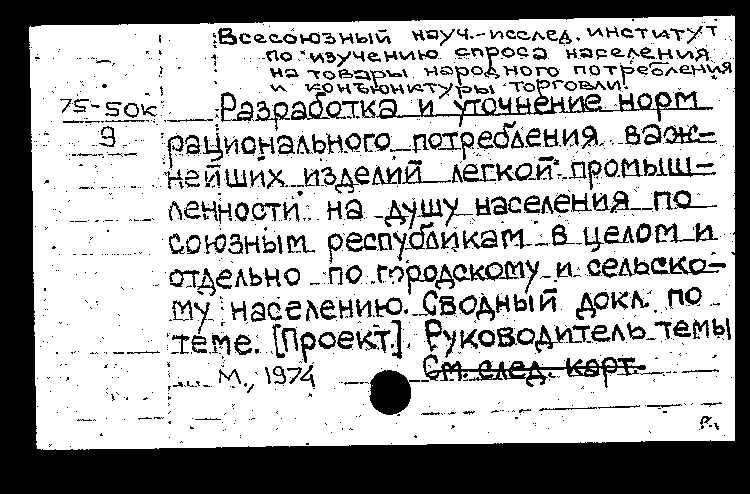 Всесоюзный науч.-исслед. институт
по изучению спроса населения
на товары народного потребления
и конъюнктуры торговли.
75-50к
9
Разработка и уточнение норм
рационального потребления важ-
нейших изделий легкой промыш-
ленности на душу населения по
союзным республикам в целом и
отдельно по городскому и сельско-
му населению. Сводный докл. по
теме. [Проект]. Руководитель темы
М., 1974 См. след. карт.